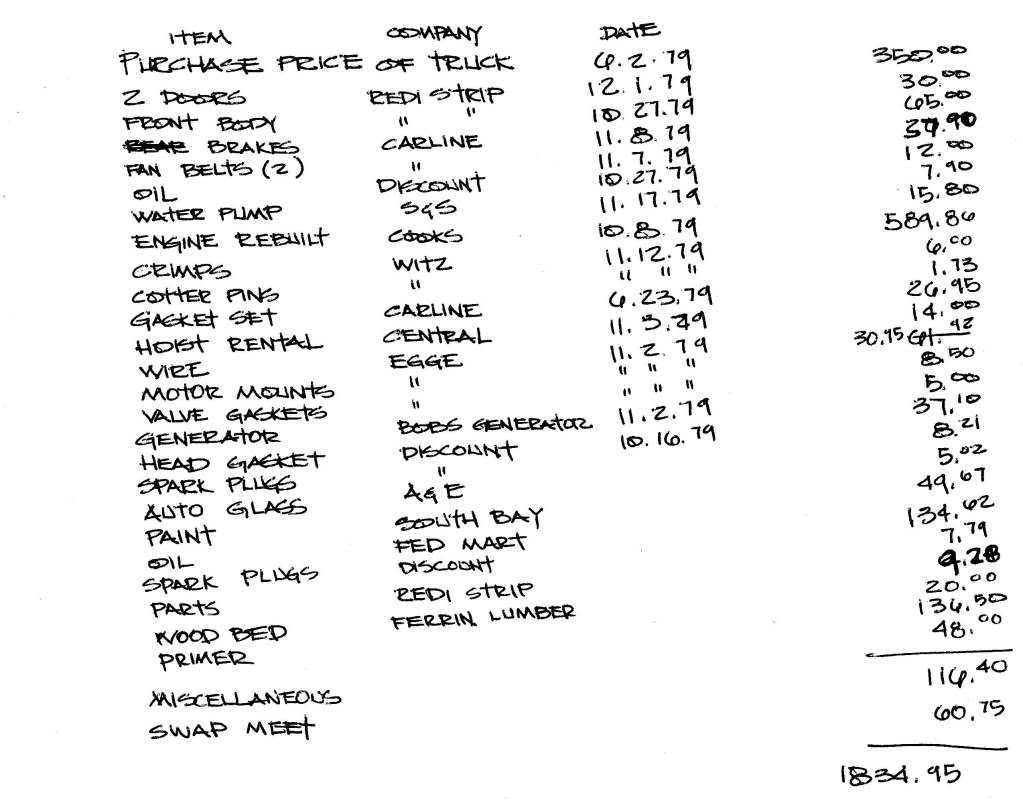 ITEM COMPANY DATE
PURCHASE PRICE OF TRUCK 6.2.79 350.00
2 DOORS REDI STRIP 12.1.79 30.00
FRONT BODY " " 10.27.79 65.00
REAR BRAKES CARLINE 11.8.79 37.90
FAN BELTS (2) " 11.7.79 12.00
OIL DISCOUNT 10.27.79 7.90
WATER PUMP S&S 11.17.79 15.80
ENGINE REBUILT COOKS 10.8.79 589.86
CRIMPS WITZ 11.12.79 6.00
COTTER PINS " " " " 1.73
GASKET SET CARLINE 6.23.79 26.95
HOIST RENTAL CENTRAL 11.3.79 14.00
WIRE EGGE 11.2.79 30.95 .92
MOTOR MOUNTS " " " " 8.50
VALVE GASKETS " " " " 5.00
GENERATOR BOBS GENERATOR 11.2.79 37.10
HEAD GASKET DISCOUNT 10.16.79 8.21
SPARK PLUGS " 5.02
AUTO GLASS A&E 49.67
PAINT SOUTH BAY 134.62
OIL FED MART 7.79
SPARK PLUGS DISCOUNT 9.28
PARTS REDI STRIP 20.00
WOOD BED FERRIN LUMBER 136.50
PRIMER 48.00
MISCELLANEOUS 116.40
SWAP MEET 60.75
1834.95